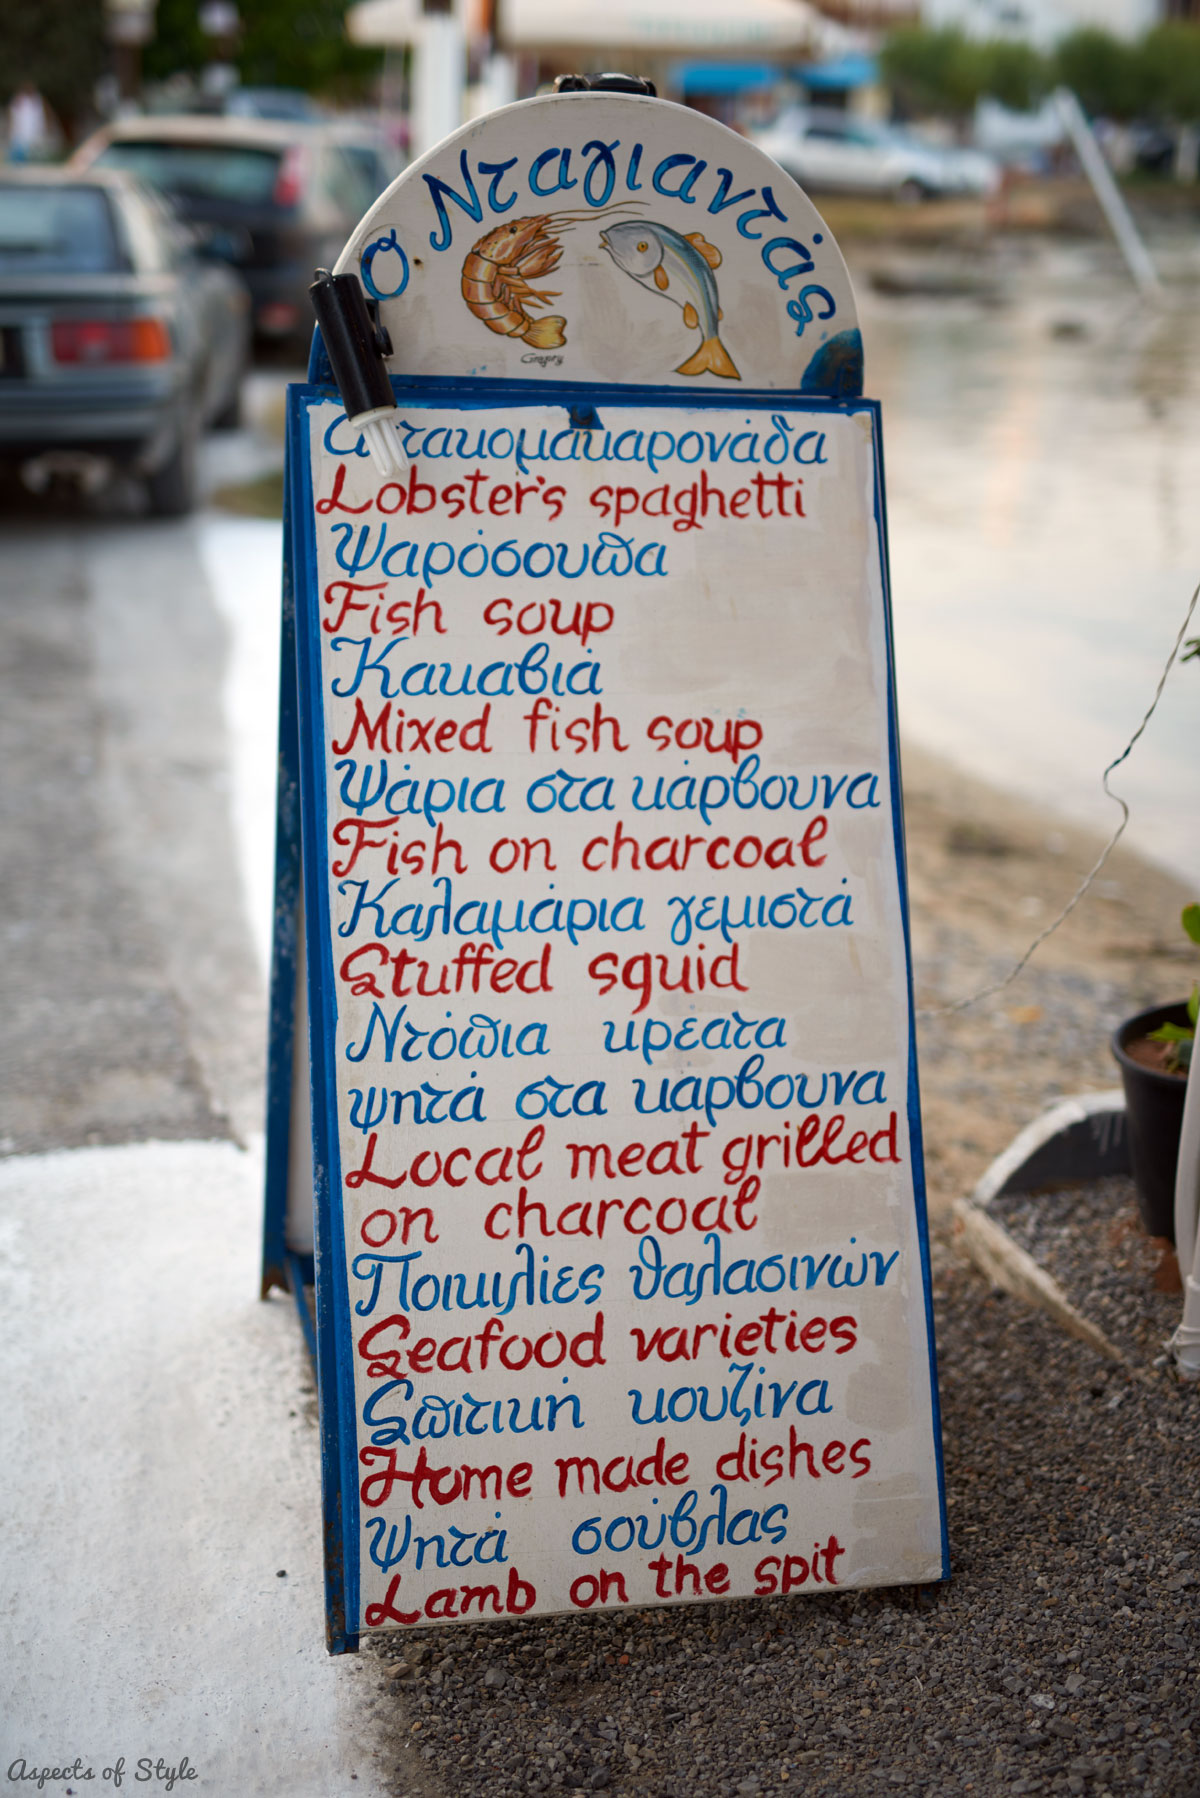 Ο Νταγιαντάς
Gregory
Lobster's spaghetti
Ψαρόσουπα
Fish soup
Κακαβιά
Mixed fish soup
Ψάρια στα κάρβουνα
Fish on charcoal
Καλαμάρια γεμιστά
Stuffed squid
Ντόπια κρέατα
ψητά στα καρβουνα
Local meat grilled
on charcoal
Ποικιλίες θαλασινών
Seafood varieties
Σπιτική κουζίνα
Home made dishes
Ψητά σούβλας
Lamb on the spit
Aspects of Style